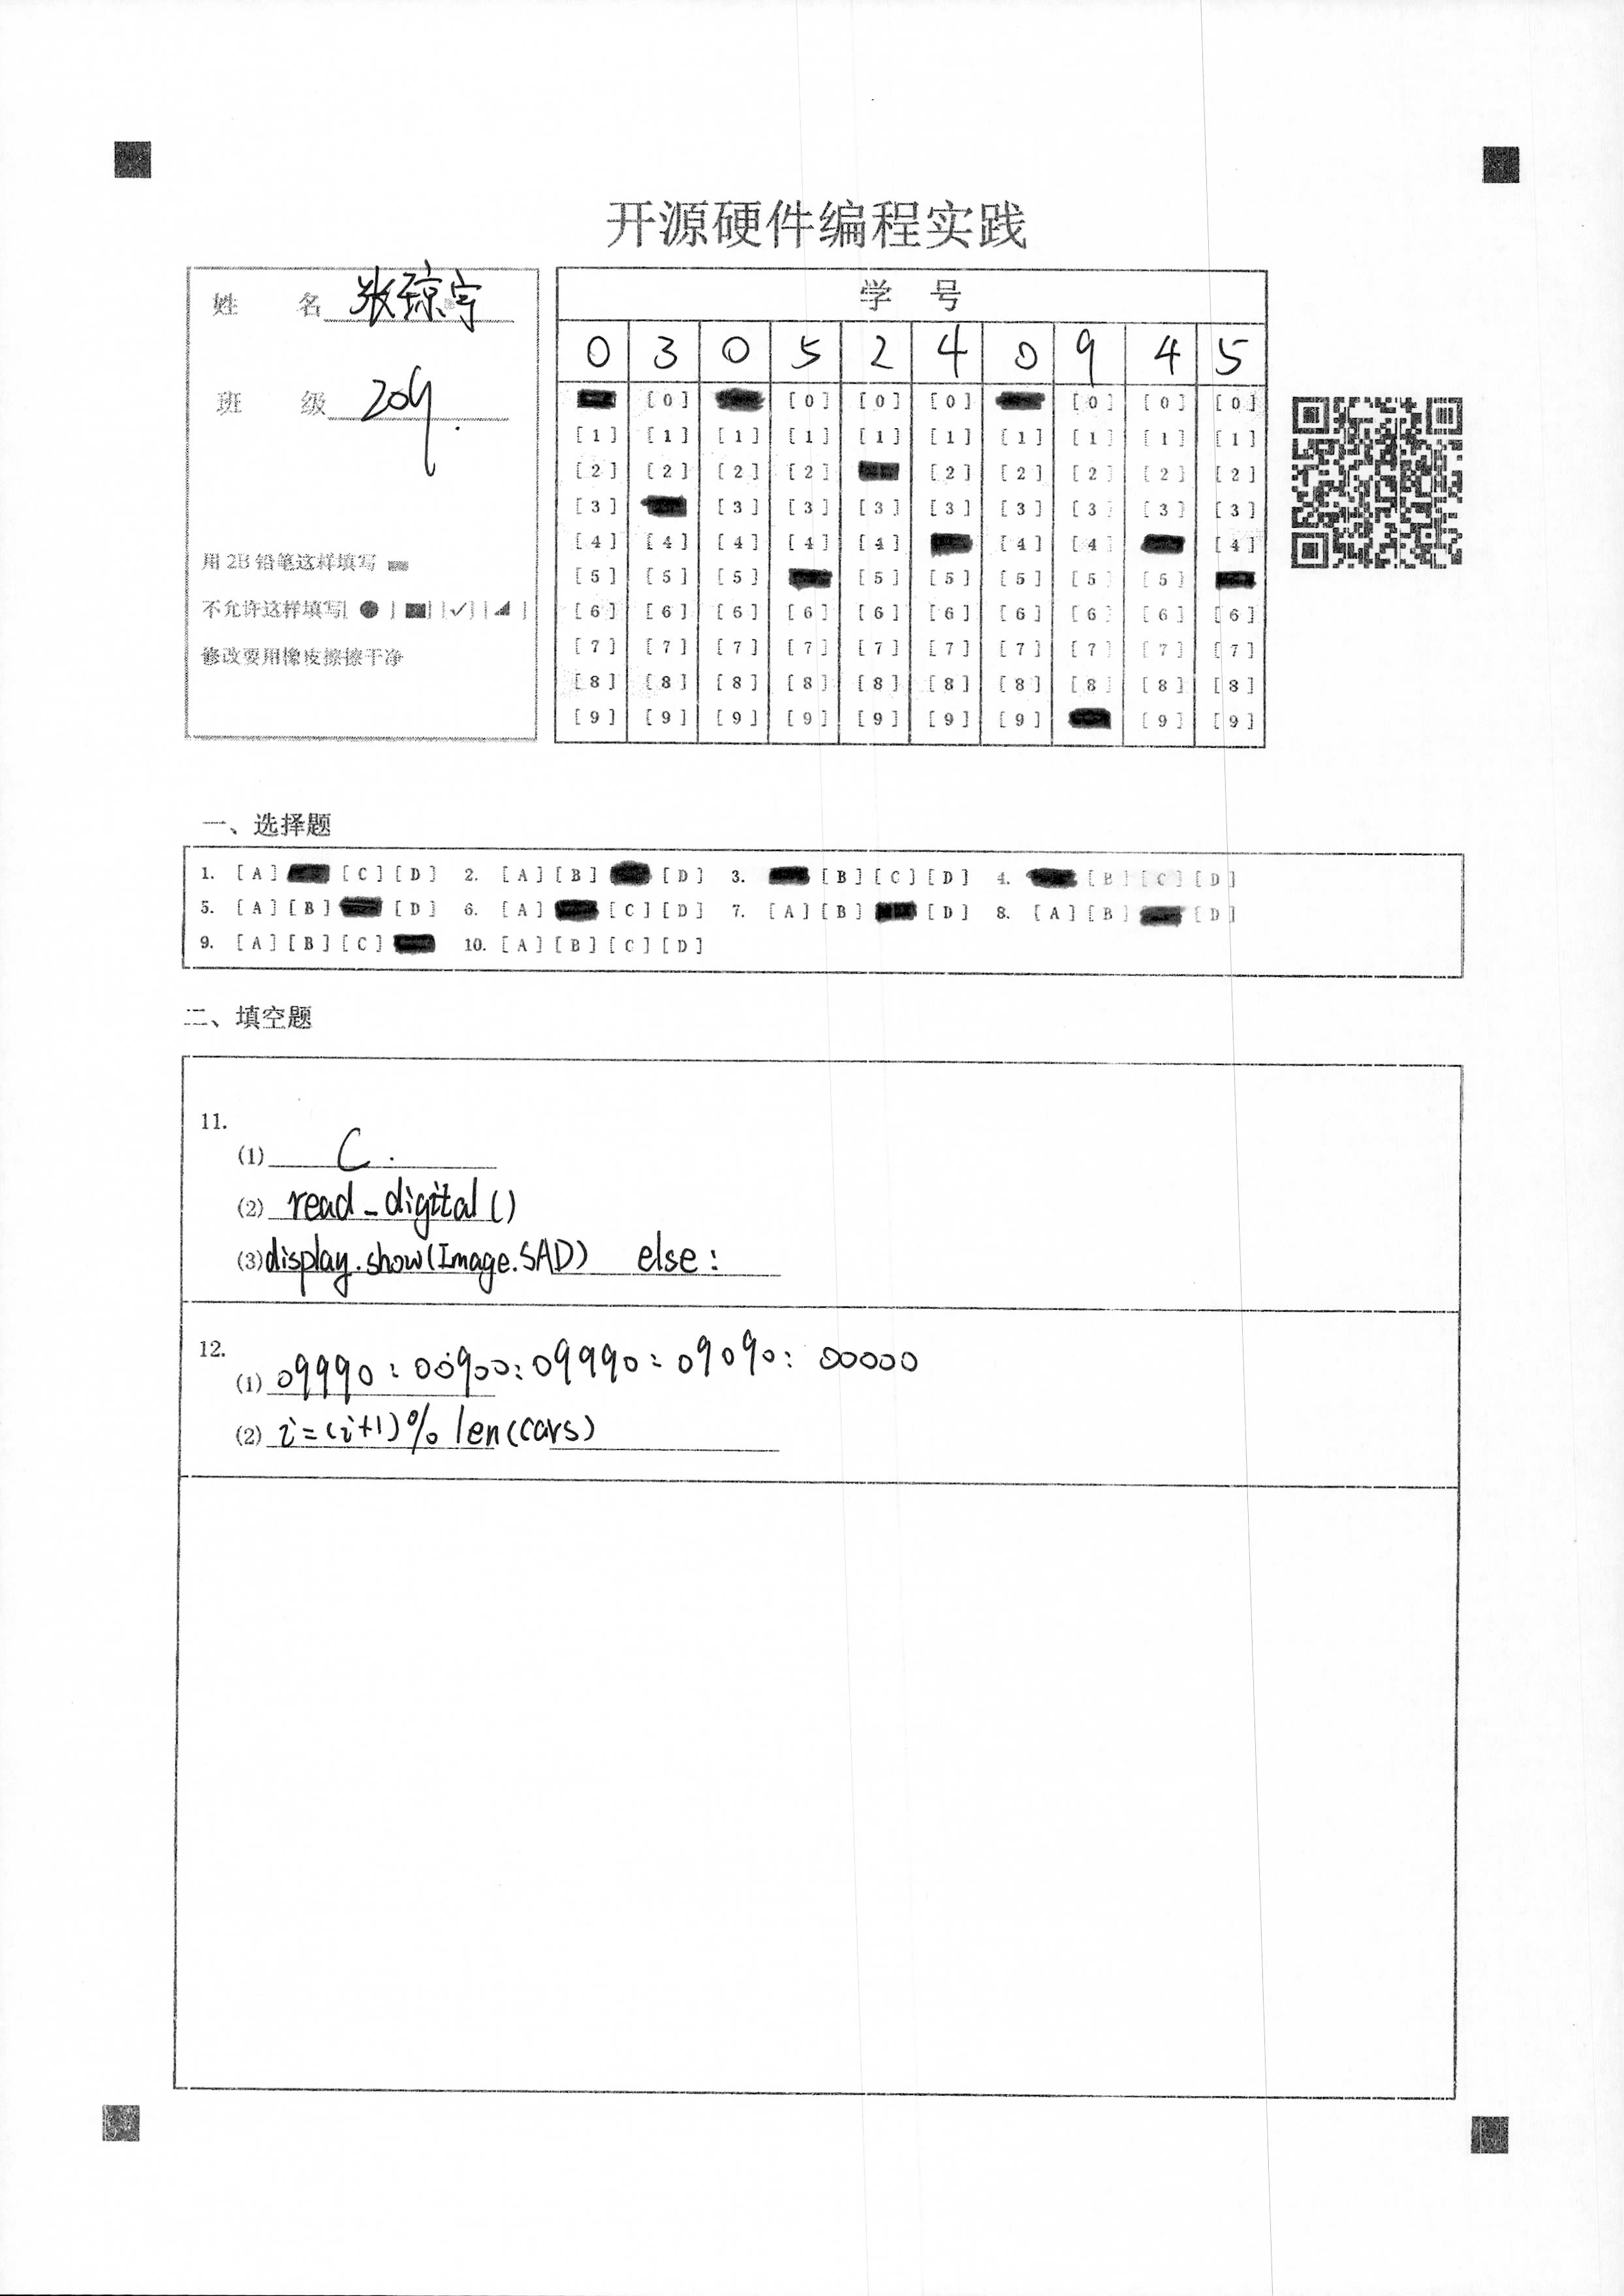 开源硬件编程实践
姓 名 张琼宇
班 级 209.
用 2B 铅笔这样填写
不允许这样填写[ ● ] [■] [✓] [◢ ]
修改要用橡皮擦擦干净
学 号
0 3 0 5 2 4 0 9 4 5
[0] [0] [0] [0] [0] [0] [0]
[1] [1] [1] [1] [1] [1] [1] [1] [1] [1]
[2] [2] [2] [2] [2] [2] [2] [2] [2]
[3] [3] [3] [3] [3] [3] [3] [3] [3]
[4] [4] [4] [4] [4] [4] [4] [4]
[5] [5] [5] [5] [5] [5] [5] [5]
[6] [6] [6] [6] [6] [6] [6] [6] [6] [6]
[7] [7] [7] [7] [7] [7] [7] [7] [7] [7]
[8] [8] [8] [8] [8] [8] [8] [8] [8] [8]
[9] [9] [9] [9] [9] [9] [9] [9] [9]
一、选择题
1. [A] [C] [D] 2. [A] [B] [D] 3. [B] [C] [D] 4. [B] [C] [D]
5. [A] [B] [D] 6. [A] [C] [D] 7. [A] [B] [D] 8. [A] [B] [D]
9. [A] [B] [C] 10. [A] [B] [C] [D]
二、填空题
11.
(1) C.
(2) read_digital()
(3) display.show(Image.SAD) else:
12.
(1) 09990:00900:09990:09090:00000
(2) i=(i+1)%len(cars)